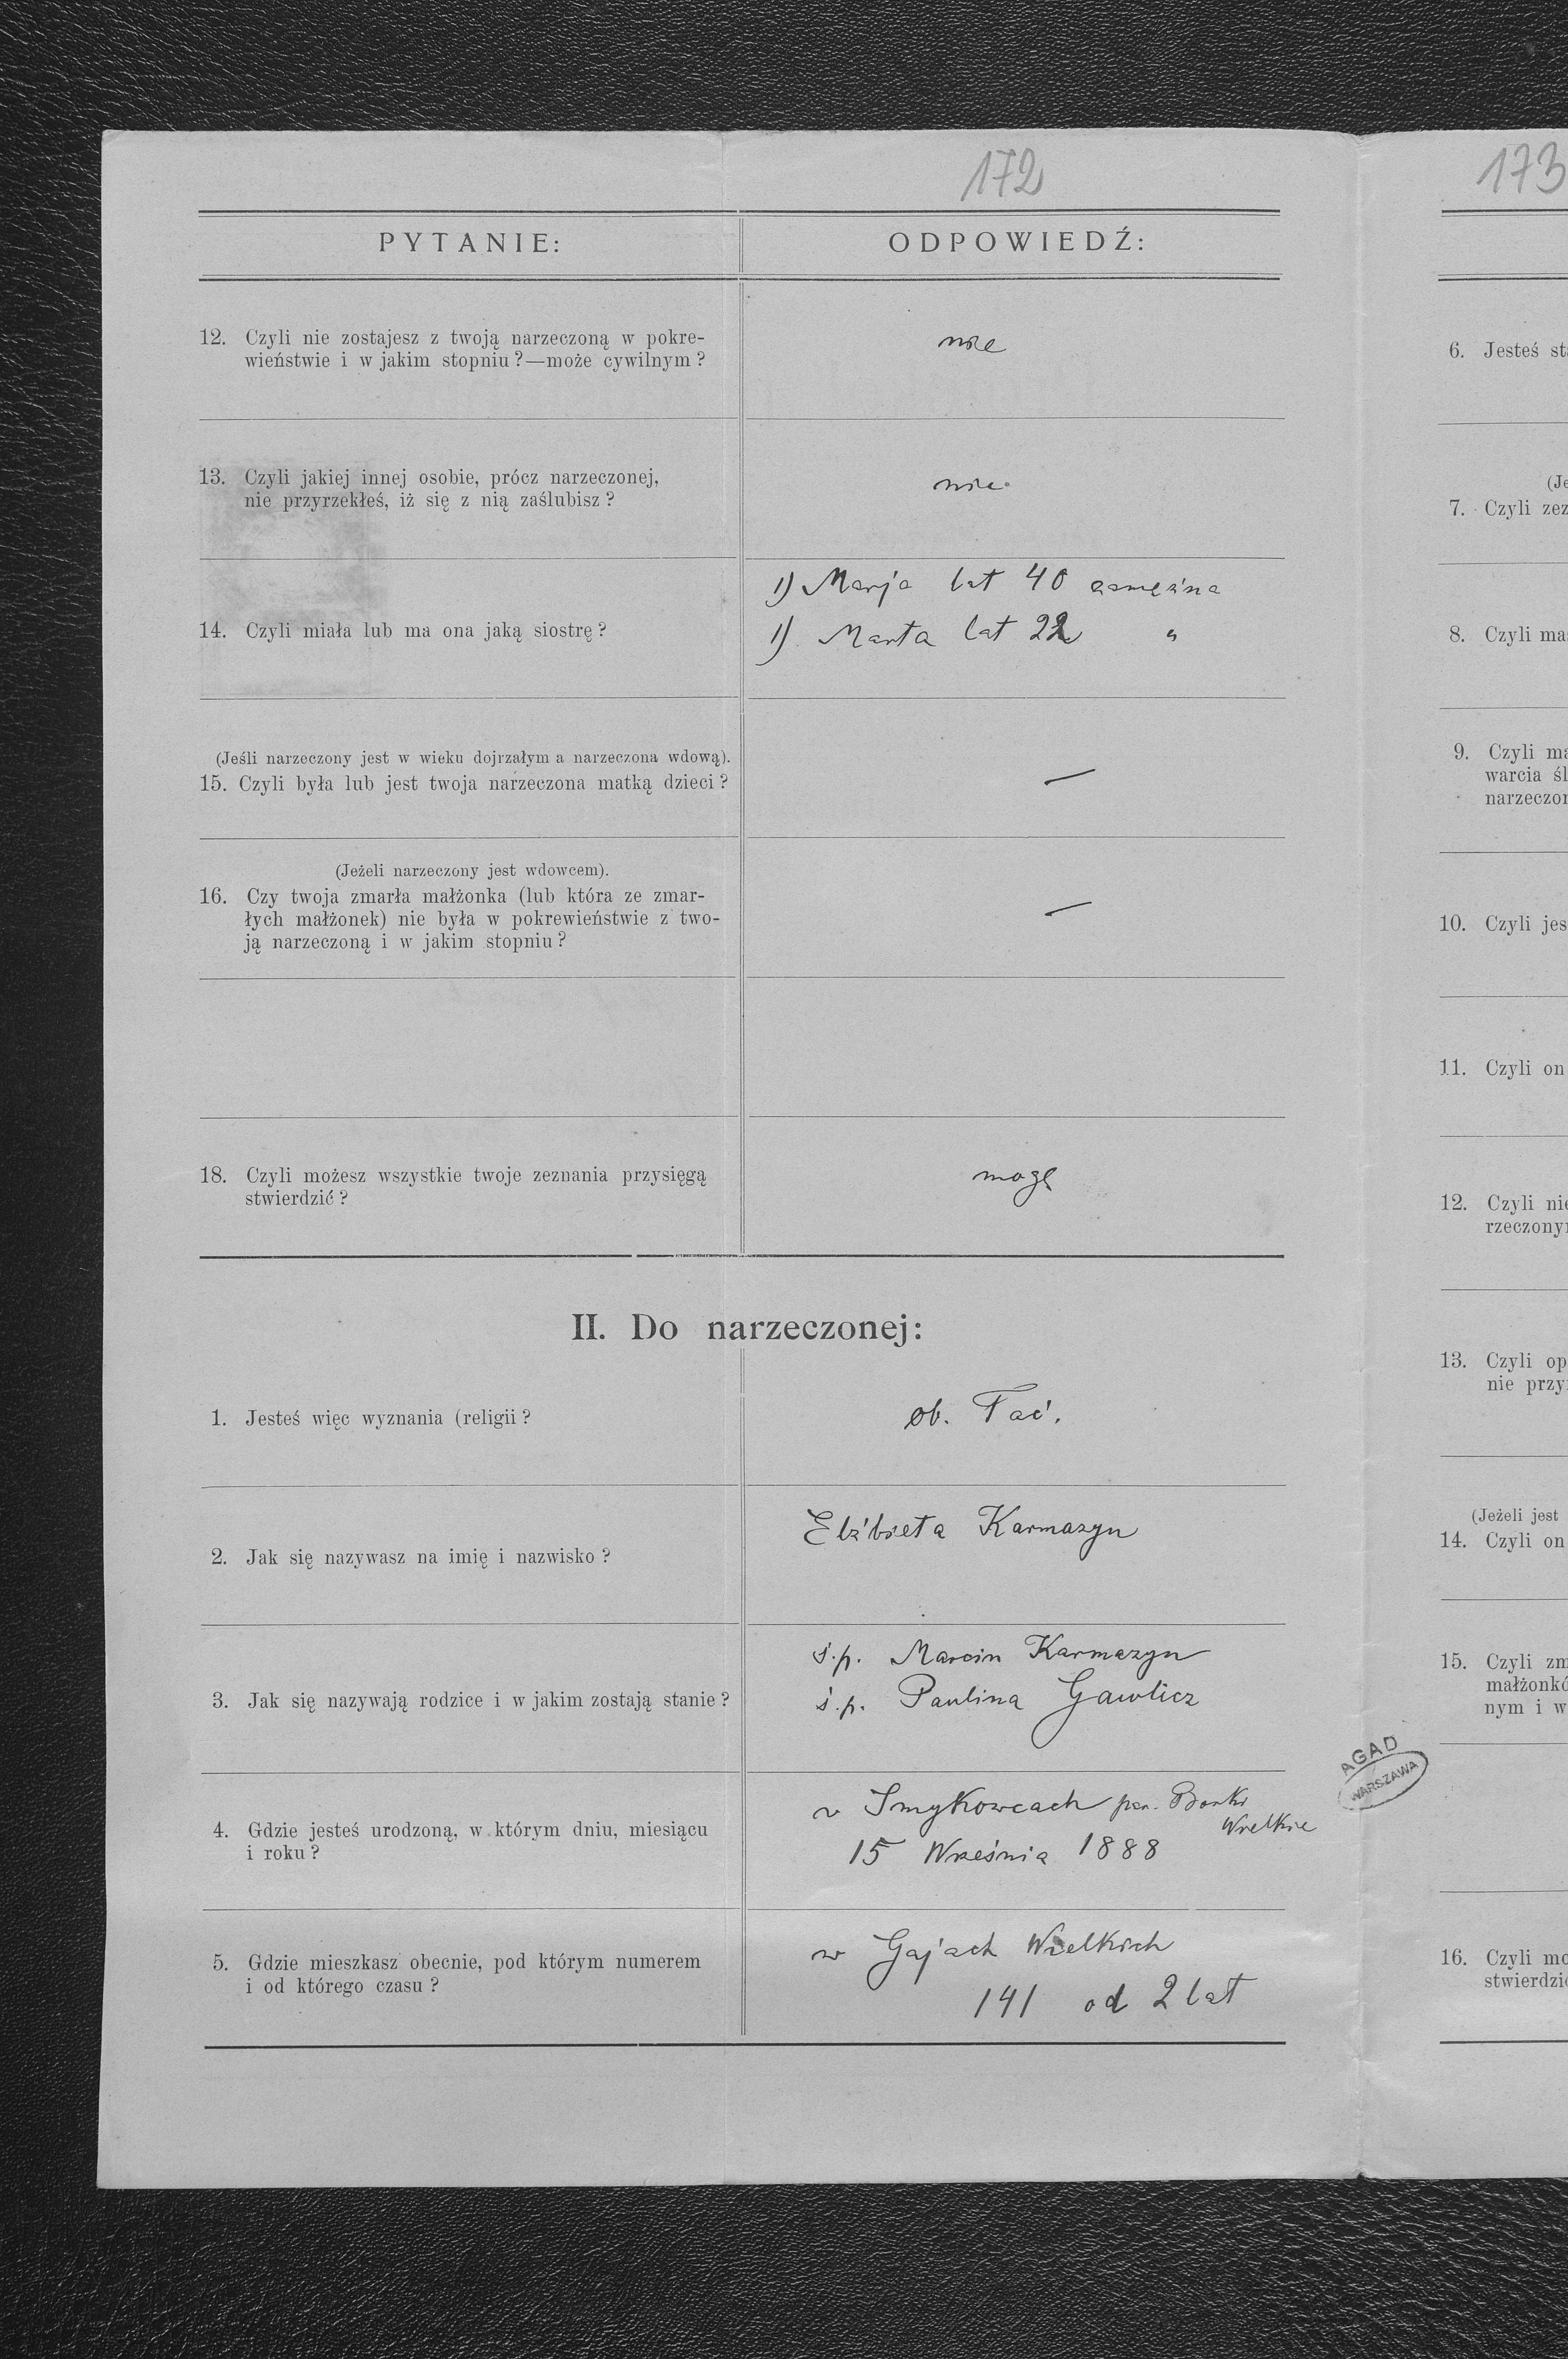 172
173
PYTANIE:
ODPOWIEDŹ:
12. Czyli nie zostajesz z twoją narzeczoną w pokre-
wieństwie i w jakim stopniu?—może cywilnym?
nie
13. Czyli jakiej innej osobie, prócz narzeczonej,
nie przyrzekłeś, iż się z nią zaślubisz?
nie
14. Czyli miała lub ma ona jaką siostrę?
1) Marja lat 40 zamężna
1) Marta lat 22 "
(Jeśli narzeczony jest w wieku dojrzałym a narzeczona wdową).
15. Czyli była lub jest twoja narzeczona matką dzieci?
—
(Jeżeli narzeczony jest wdowcem).
16. Czy twoja zmarła małżonka (lub która ze zmar-
łych małżonek) nie była w pokrewieństwie z two-
ją narzeczoną i w jakim stopniu?
—
18. Czyli możesz wszystkie twoje zeznania przysięgą
stwierdzić?
mogę
II. Do narzeczonej:
1. Jesteś więc wyznania (religii?
ob. Łać.
2. Jak się nazywasz na imię i nazwisko?
Elżbieta Karmazyn
3. Jak się nazywają rodzice i w jakim zostają stanie?
ś.p. Marcin Karmazyn
ś.p. Paulina Gawlicz
4. Gdzie jesteś urodzoną, w którym dniu, miesiącu
i roku?
w Smykowcach par. Borki
Wielkie
15 Września 1888
5. Gdzie mieszkasz obecnie, pod którym numerem
i od którego czasu?
w Gajach Wielkich
141 od 2 lat
6. Jesteś st
(Je
7. Czyli zez
8. Czyli ma
9. Czyli ma
warcia śl
narzeczon
10. Czyli jes
11. Czyli on
12. Czyli nie
rzeczony
13. Czyli op
nie przy
(Jeżeli jest
14. Czyli on
15. Czyli zm
małżonkó
nym i w
AGAD
WARSZAWA
16. Czyli mo
stwierdzi